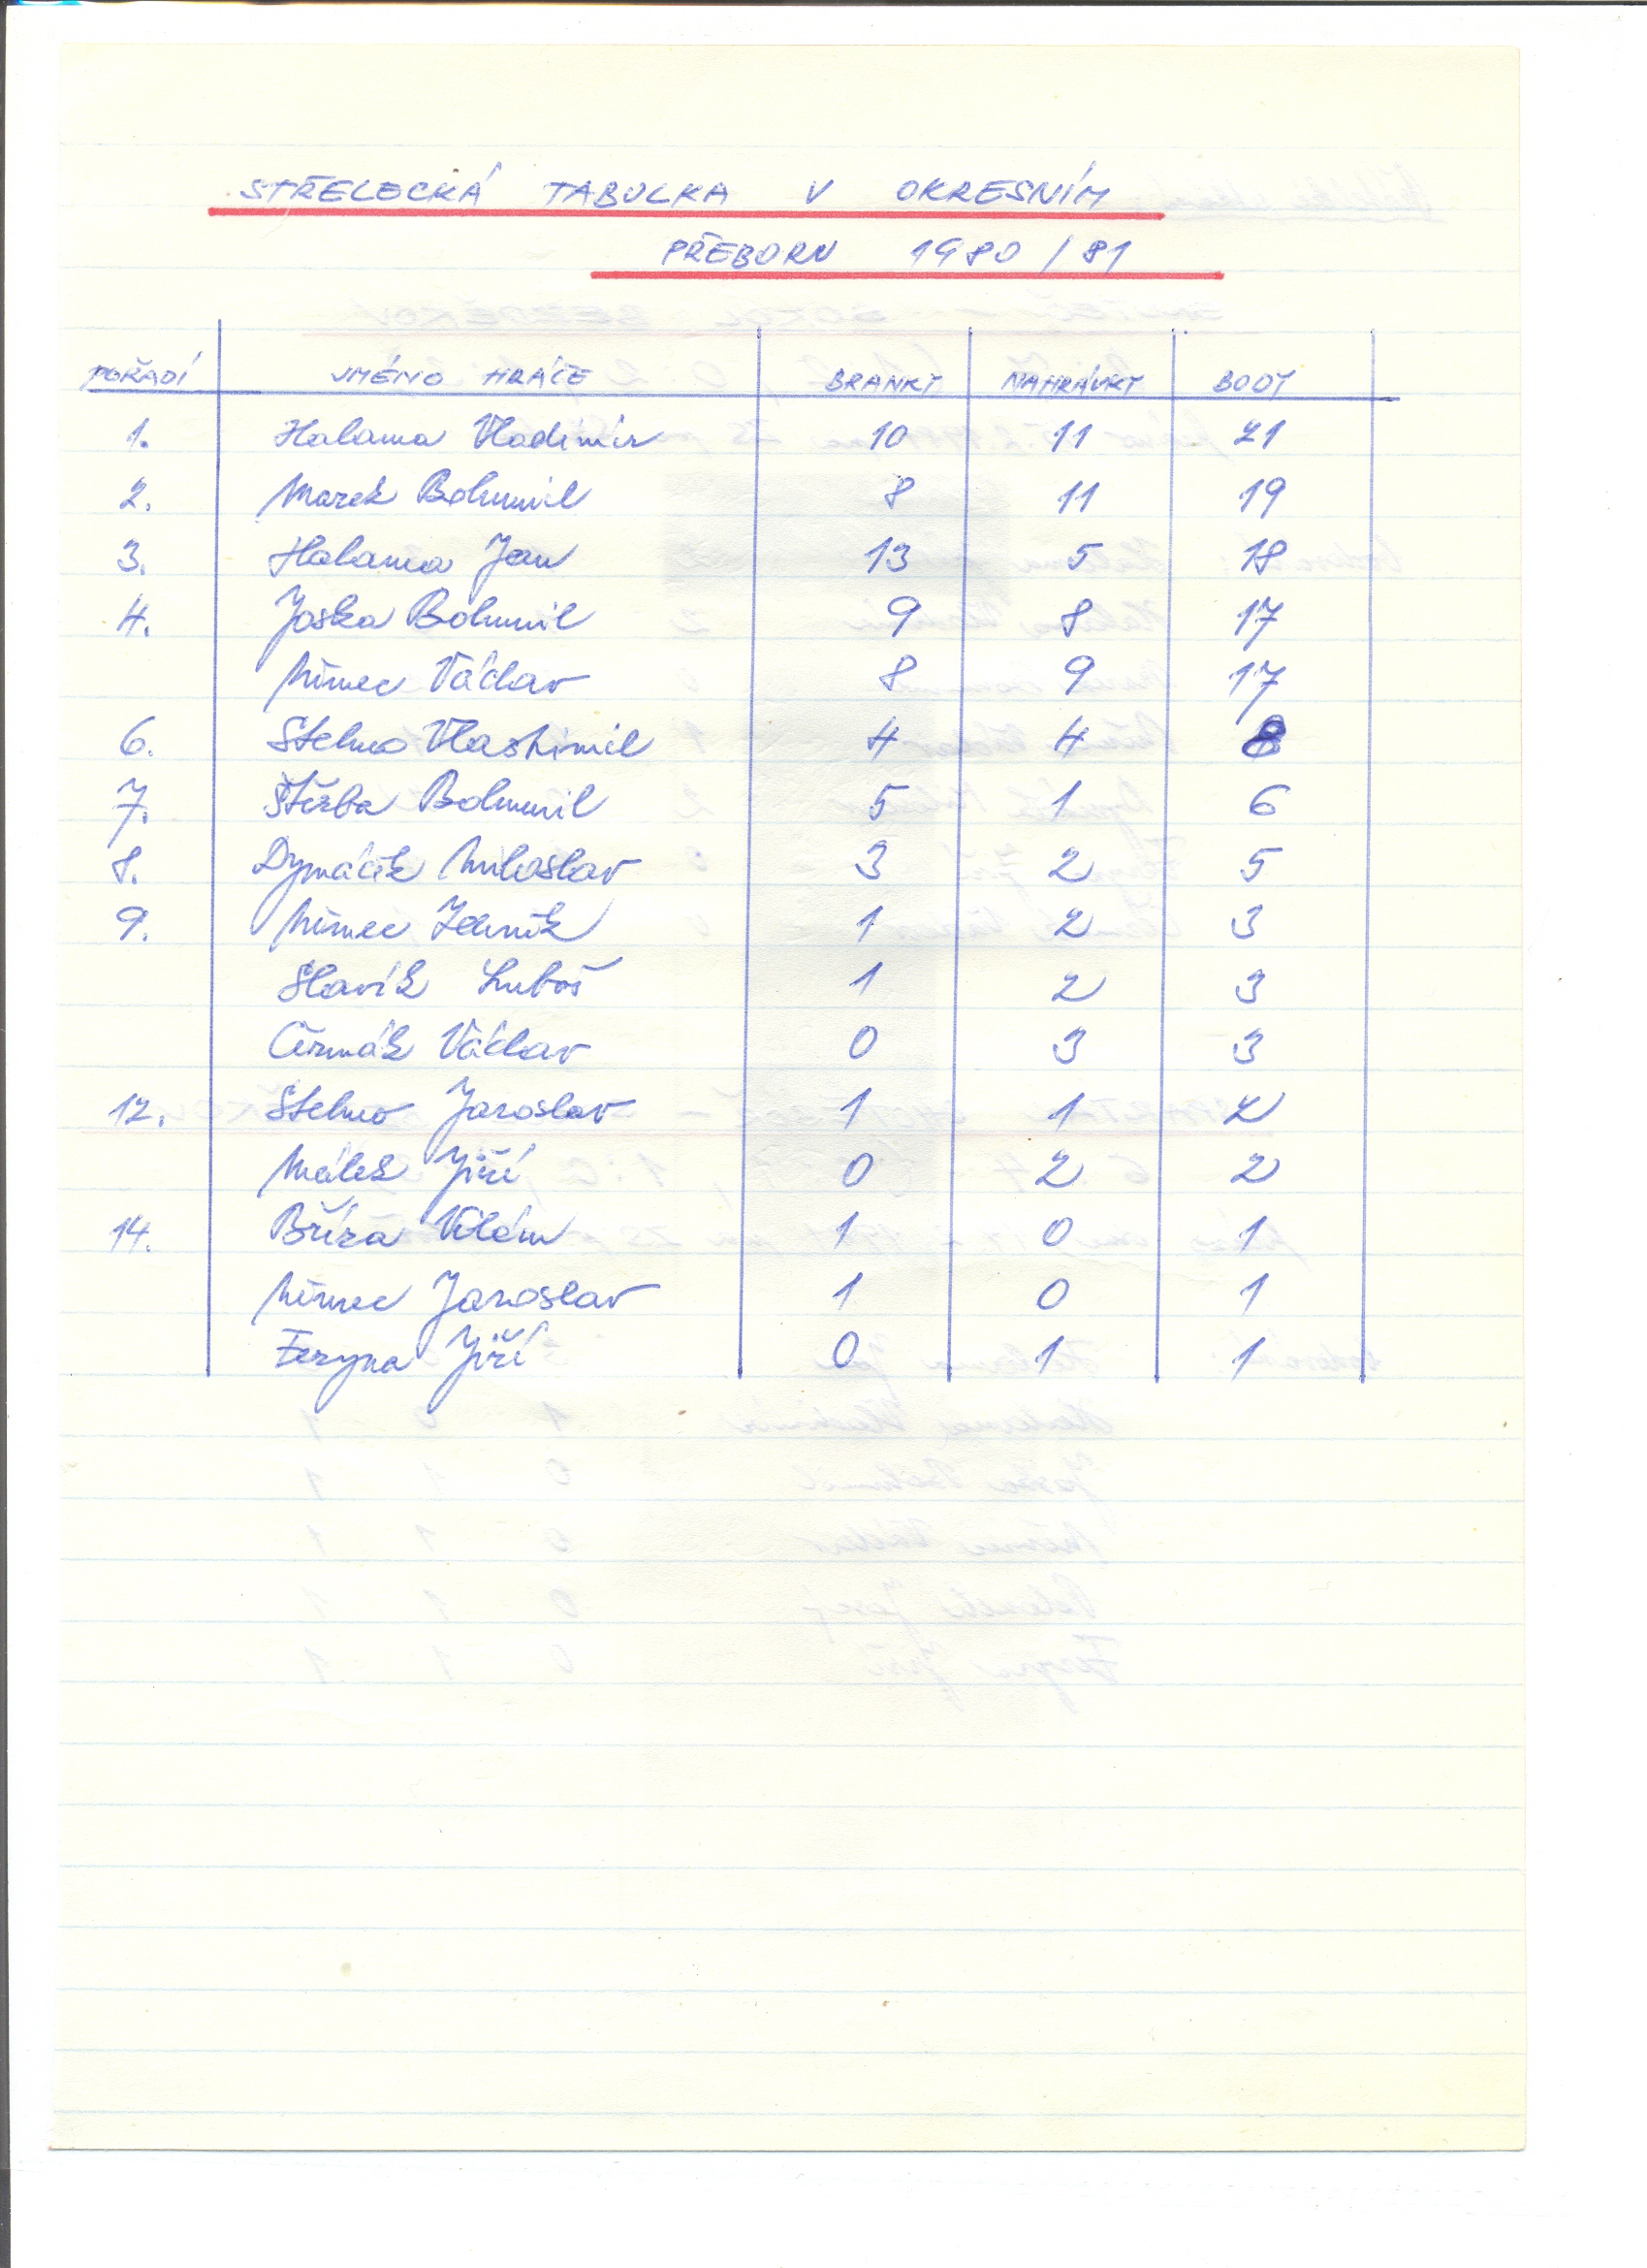 STŘELECKÁ TABULKA V OKRESNÍM
PŘEBORU 1980/81
POŘADÍ JMÉNO HRÁČE BRANKY NAHRÁVKY BODY
1. Halama Vladimír 10 11 21
2. Marek Bohumil 8 11 19
3. Halama Jan 13 5 18
4. Joska Bohumil 9 8 17
Němec Václav 8 9 17
6. Stehno Vlastimil 4 4 8
7. Štěrba Bohumil 5 1 6
8. Dymáček Miloslav 3 2 5
9. Němec Zdeněk 1 2 3
Slavík Luboš 1 2 3
Čermák Václav 0 3 3
12. Stehno Jaroslav 1 1 2
Málek Jiří 0 2 2
14. Bříza Vilém 1 0 1
Němec Jaroslav 1 0 1
Feryna Jiří 0 1 1